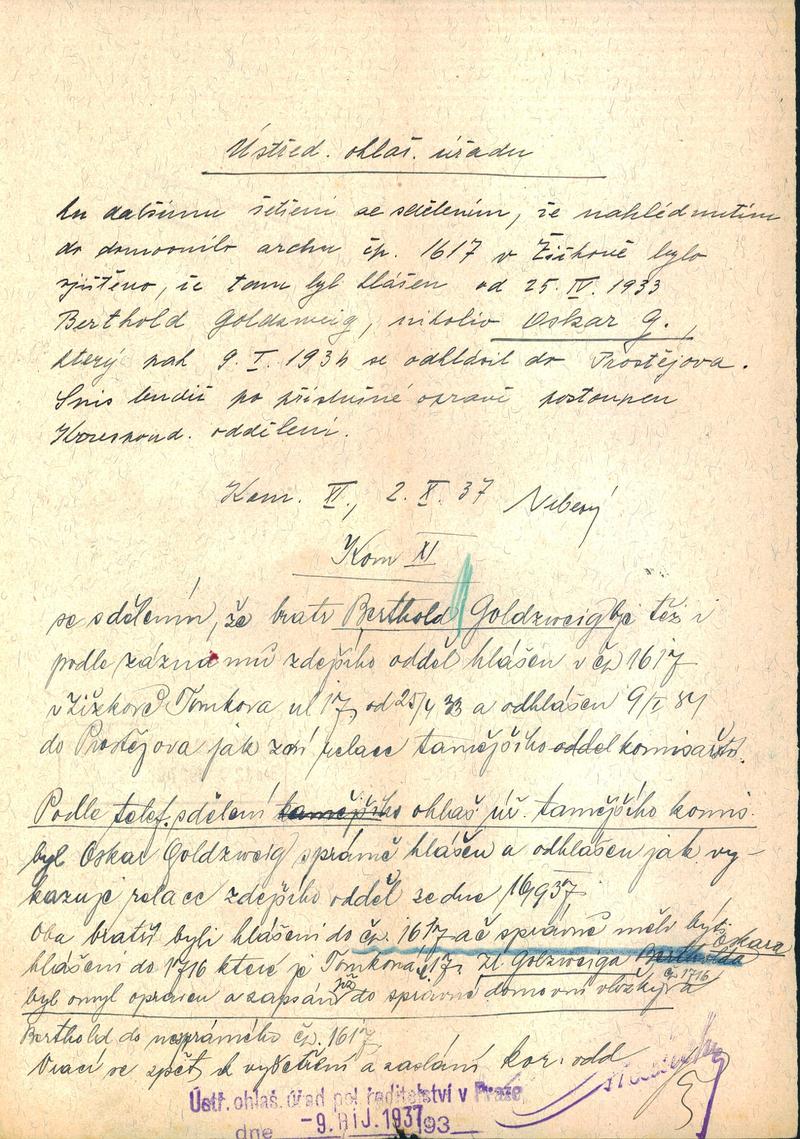 Ústřed. ohlaš. úřadu
ku dalšímu šetření se sdělením, že nahlédnutím
do domovního archu čp. 1617 v Žižkově bylo
zjištěno, že tam byl hlášen od 25. IV. 1933
Berthold Goldzweig, nikoliv Oskar G.,
který pak 9. I. 1934 se odhlásil do Prostějova.
Spis budiž po příslušné opravě postoupen
Korespond. oddělení.
Kom. XI, 2. X. 37
Kom XI
se sdělením, že bratr Berthold Goldzweig je též i
podle záznamů zdejšího odděl hlášen v čp 1617
v Žižkově Tomkova ul 17, od 25/4 33 a odhlášen 9/I 34
do Prostějova jak zní relace tamějšího oddel komisařst.
Podle telef. sdělení tamějšího ohlaš úř. tamějšího komis.
byl Oskar Goldzweig správně hlášen a odhlášen jak vy-
kazuje relace zdejšího odděl ze dne
Oba bratři byli hlášeni do čp. 1617 ač správně měli býti
hlášeni do 1716 které je Tomkova č. 17. Goldzweiga Bertholda Oskara
byl omyl opraven a zapsán již do správné domovní vložky čp 1716 a
Berthold do nesprávného čp. 1617
Vrací se zpět k vyšetření a zaslání kor. odd
Ústř. ohlaš. úřad pol. ředitelství v Praze
dne -9. ŘÍJ. 1937 193